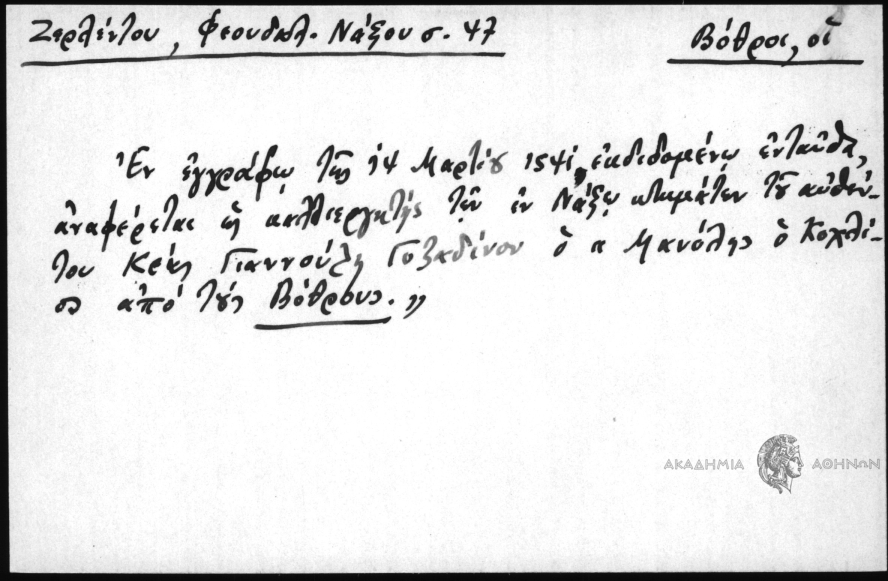 Ζερλέντου, Φεουδαλ. Νάξου σ. 47
Βόθροι, οἱ
Ἐν ἐγγράφῳ τῆς 14 Μαρτίου 1541, ἐκδιδομένῳ ἐνταῦθα,
ἀναφέρεται ὡς καλλιεργητὴς τῶν ἐν Νάξῳ κτημάτων τοῦ αὐθέν-
του Κρὲς Γιαννούλη Γοζαδίνου ὁ κ Μανόλης ὁ Κοχλί-
ος ἀπὸ τοὺς Βόθρους.„
ΑΚΑΔΗΜΙΑ ΑΘΗΝΩΝ